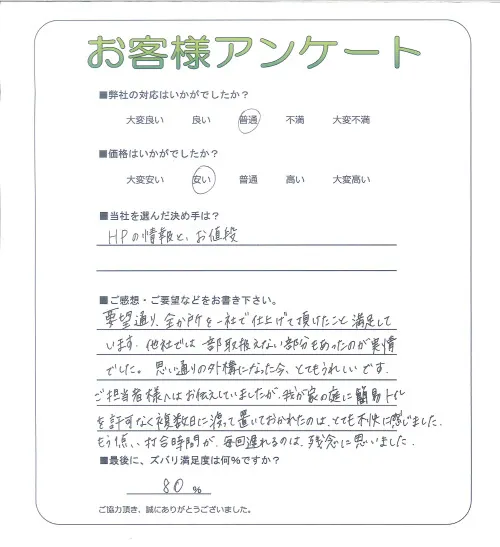 お客様アンケート
■弊社の対応はいかがでしたか？
大変良い 良い 普通 不満 大変不満
■価格はいかがでしたか？
大変安い 安い 普通 高い 大変高い
■当社を選んだ決め手は？
HPの情報と、お値段
■ご感想・ご要望などをお書き下さい。
要望通り、全か所を一社で仕上げて頂けたこと満足して
います。他社では一部取扱えない部分もあったのが実情
でした。思い通りの外構になった今、とてもうれしいです。
ご担当者様へはお伝えしていましたが、我が家の庭に簡易トイレ
を許可なく複数日に渡って置いておかれたのは、とても不快に感じました。
もう少し、打合時間が、毎回遅れるのは、残念に思いました。
■最後に、ズバリ満足度は何％ですか？
80 %
ご協力頂き、誠にありがとうございました。